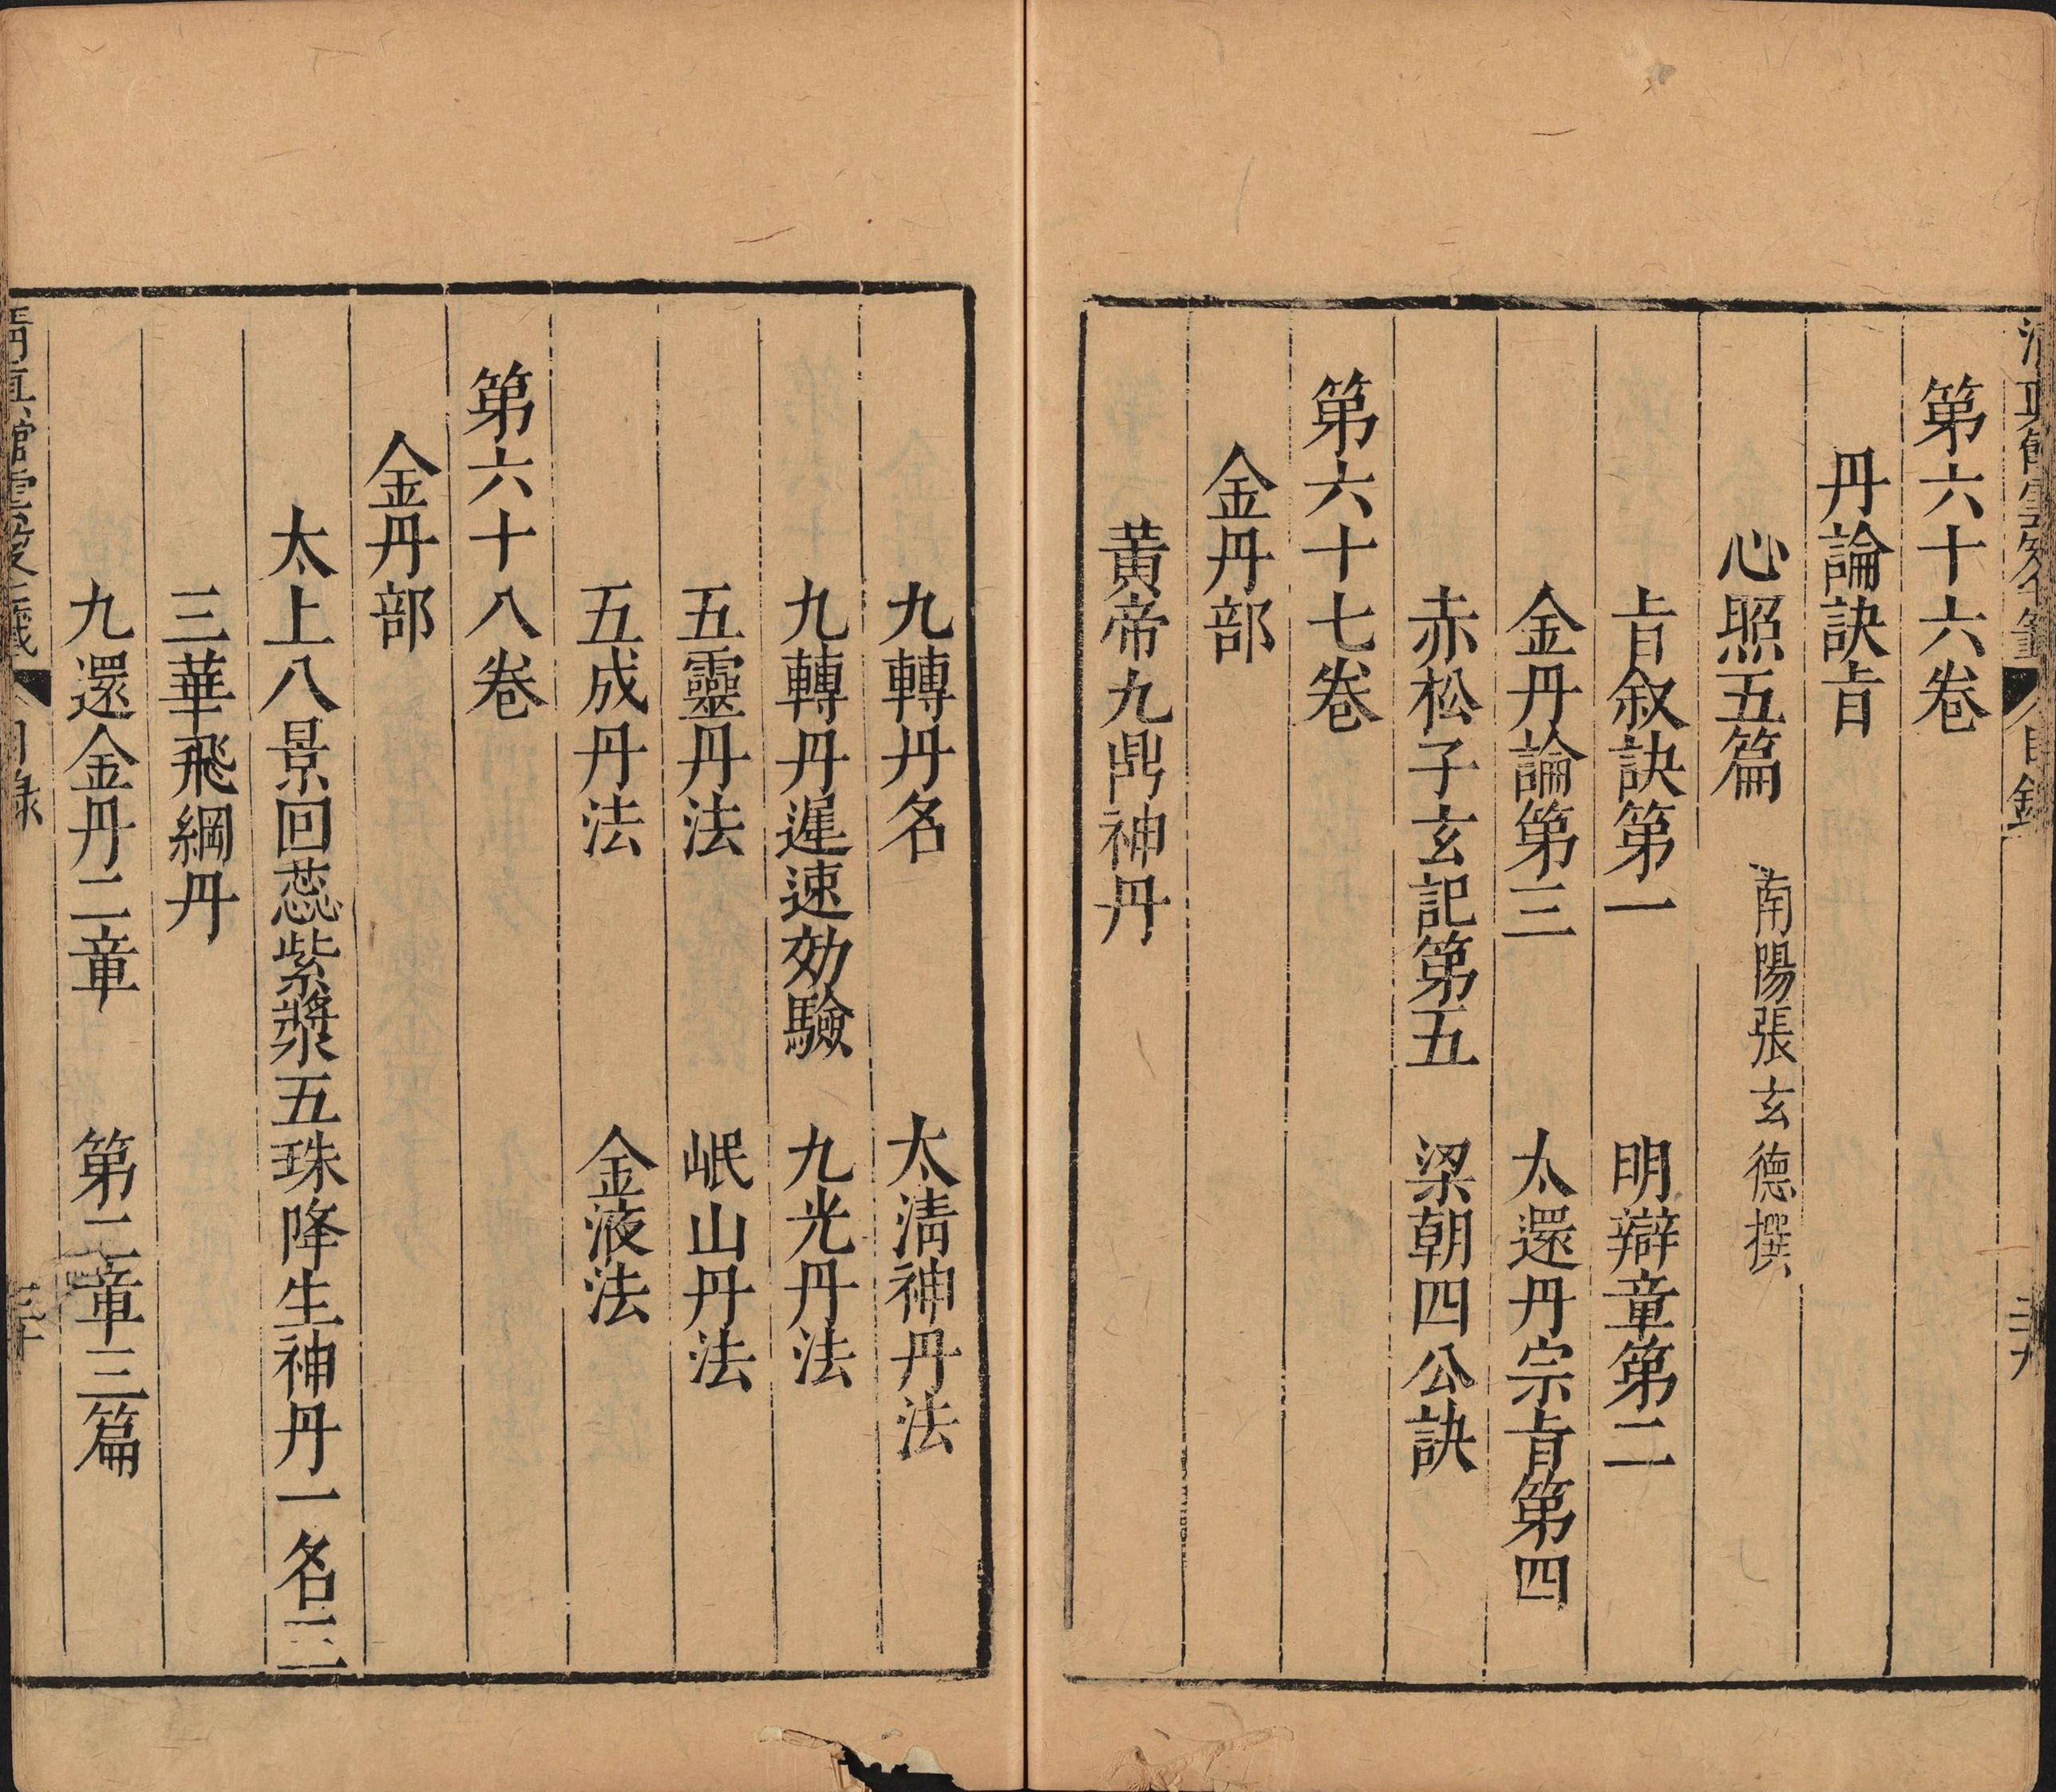 第六十六卷
丹論訣㫖
心照五篇 南陽張玄德撰
㫖叙訣第一 明辯章第二
金丹論第三 太還丹宗㫖第四
赤松子玄記第五 梁朝四公訣
第六十七卷
金丹部
黃帝九鼎神丹
九轉丹名 太淸神丹法
九轉丹遲速効驗 九光丹法
五靈丹法 岷山丹法
五成丹法 金液法
第六十八卷
金丹部
太上八景回蕊紫漿五珠降生神丹一名三
三華飛綱丹
九還金丹二章 第二章三篇
目錄